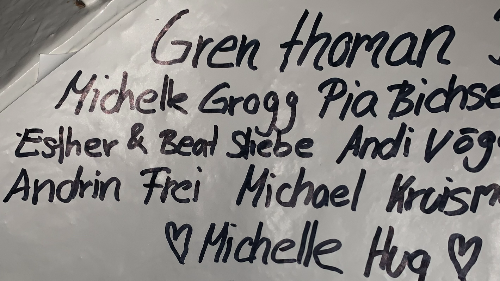 Gren thoman
Michelle Grogg Pia Bichse
Esther & Beat Stiebe Andi Vög
Andrin Frei Michael Kruism
♡ Michelle Hug ♡